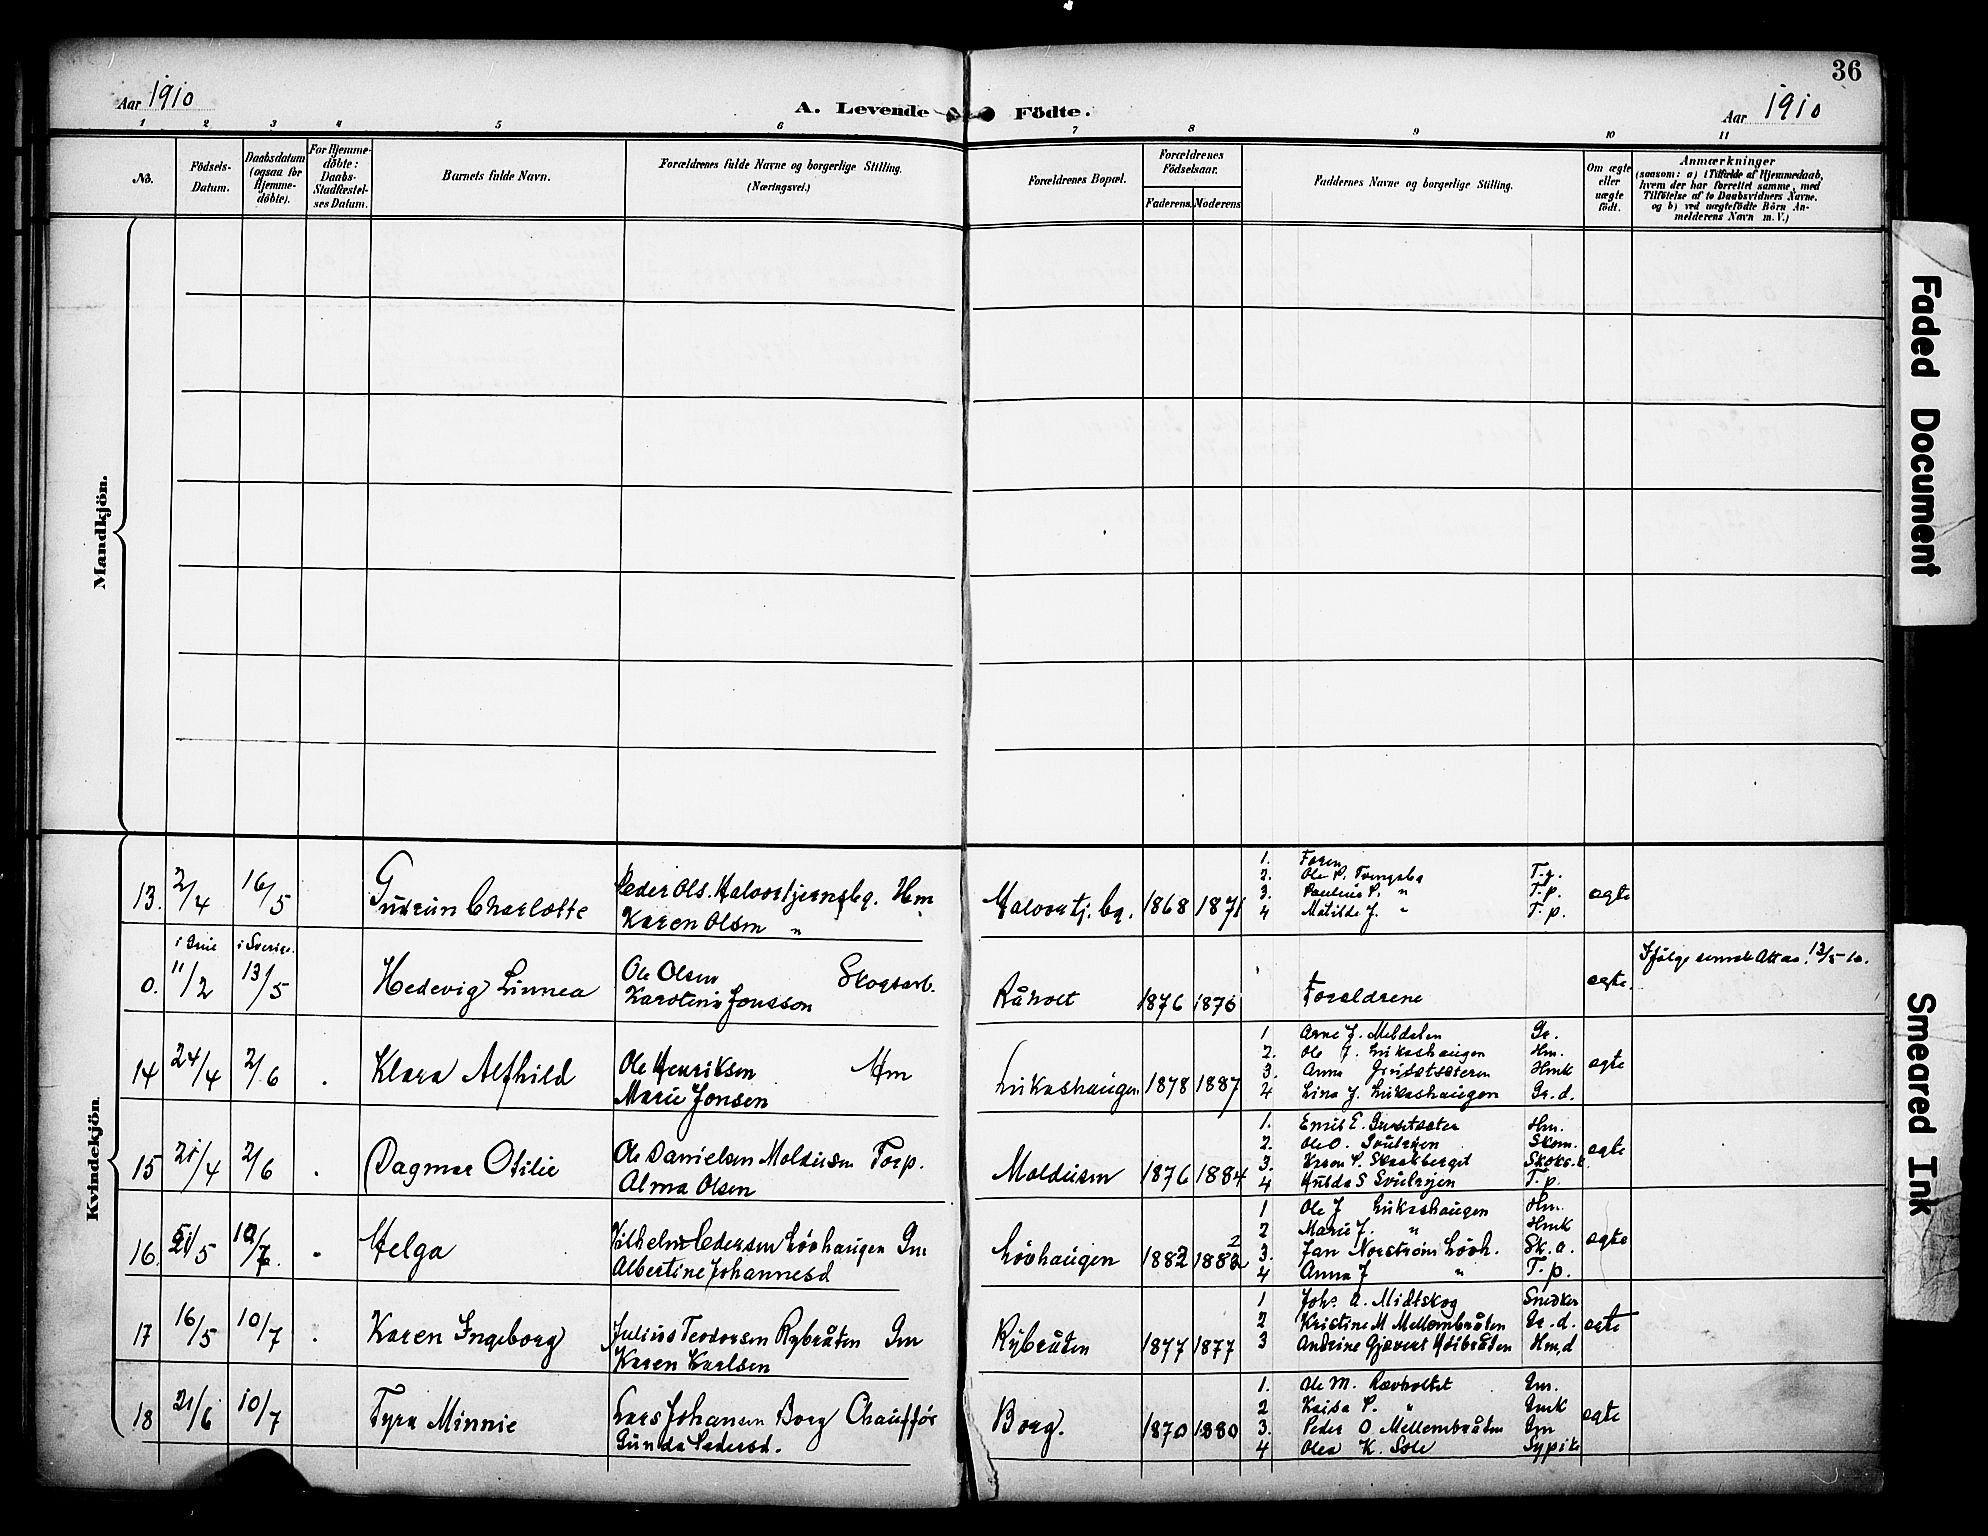 36
Aar 1910
A. Levende Födte.
Aar 1910
1 2 3 4 5 6 7 8 9 10 11
No.
Födsels-
Datum.
Daabsdatum
(ogsaa for
Hjemme-
döbte).
For Hjemme-
döbte:
Daabs-
Stadfæstel-
ses Datum.
Barnets fulde Navn.
Forældrenes fulde Navne og borgerlige Stilling.
(Næringsvei.)
Forældrenes Bopæl.
Forældrenes
Födselsaar.
Faderens. Moderens
Faddernes Navne og borgerlige Stilling.
Om ægte
eller
uægte
födt.
Anmærkninger
(saasom: a) i Tilfælde af Hjemmedaab,
hvem der har forrettet samme, med
Tilföielse af to Daabsvidners Navne,
og b) ved uægtefödte Börn An-
melderens Navn m. V.)
Mandkjön.
Kvindekjön.
13. 2/4 16/5 Gudrun Charlotte
Peder Ols. Halvortjernsbg. Hm
Karen Olsen "
Halvortj. bg. 1868 1871
1. Faren
2. Ole P. T.p.
3. Pauline P. " T.p.
4 Matilde J. " T.p.
ægte
0. 11/2 i Sverige 13/5 Hedevig Linnea
Ole Olsen Skogsarb.
Karoline Jonsson
Råholt 1876 1876
Forældrene
ægte.
Ifølge 13/5 10.
14 24/4 2/6 . Klara Alfhild
Ole Henriksen Hm
Marie Jonsen
Lukashaugen 1878 1887
1. Arne J. Meldalen Gr.
2. Ole J. Lukashaugen Hm.
3. Anna Hmk
4 Lina J. Lukashaugen Gr.d.
ægte
15 21/4 2/6 . Dagmar Otilie
Ole Danielsen Moldusen Torp.
Alma Olsen
Moldusen 1876 1884
1. Emil E. Hm.
2. Ole O. Skom.
3. Karen S. Skasberget
4 Hulda S T.p.
ægte
16. 21/5 10/7. . Helga
Vilhelm Pedersen Løvhaugen Gm
Albertine Johannesd
Løvhaugen 1882 1882
1 Ole J Lukashaugen Hm.
2 Marie J. " Hmk
3. Jan Norstrøm Løvh. Sk.a.
4 Anna J " T.p.
ægte
17 16/5 10/7 . Karen Ingeborg
Julius Teodorsen Rybråten Gm
Karen Karlsen
Rybråten 1877 1877
1 Johs. A. Midtskog Snedker
2 Kristine M Mellembråten Gr.d.
3 Andrine Gjævert Høibråten Hm,d
ægte
18 21/6 10/7 Tyra Minnie
Lars Johansen Borg Chauffør
Gunda Pedersd.
Borg. 1870 1880
1. Ole M. Rævholtet Gm.
2 Kaisa P. " Gmk
3. Peder O Mellembråten Gm
4 Olea K. Sole Sypike
ægte
Faded Document
Smeared Ink